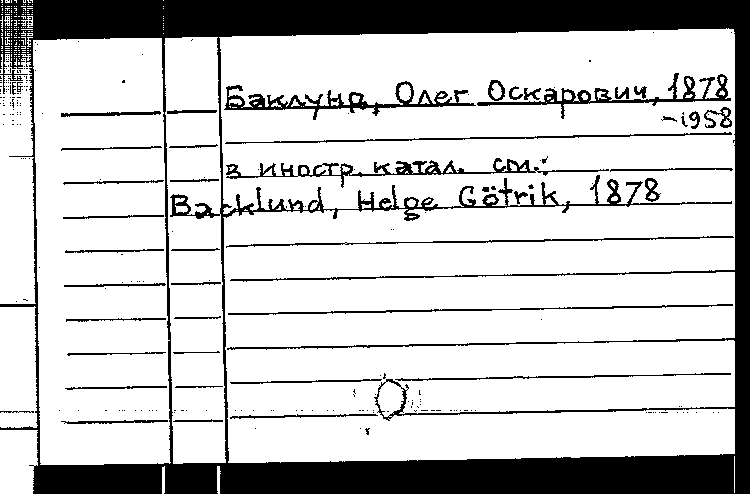 Баклунд, Олег Оскарович, 1878
-1958
в иностр. катал. см.:
Backlund, Helge Götrik, 1878